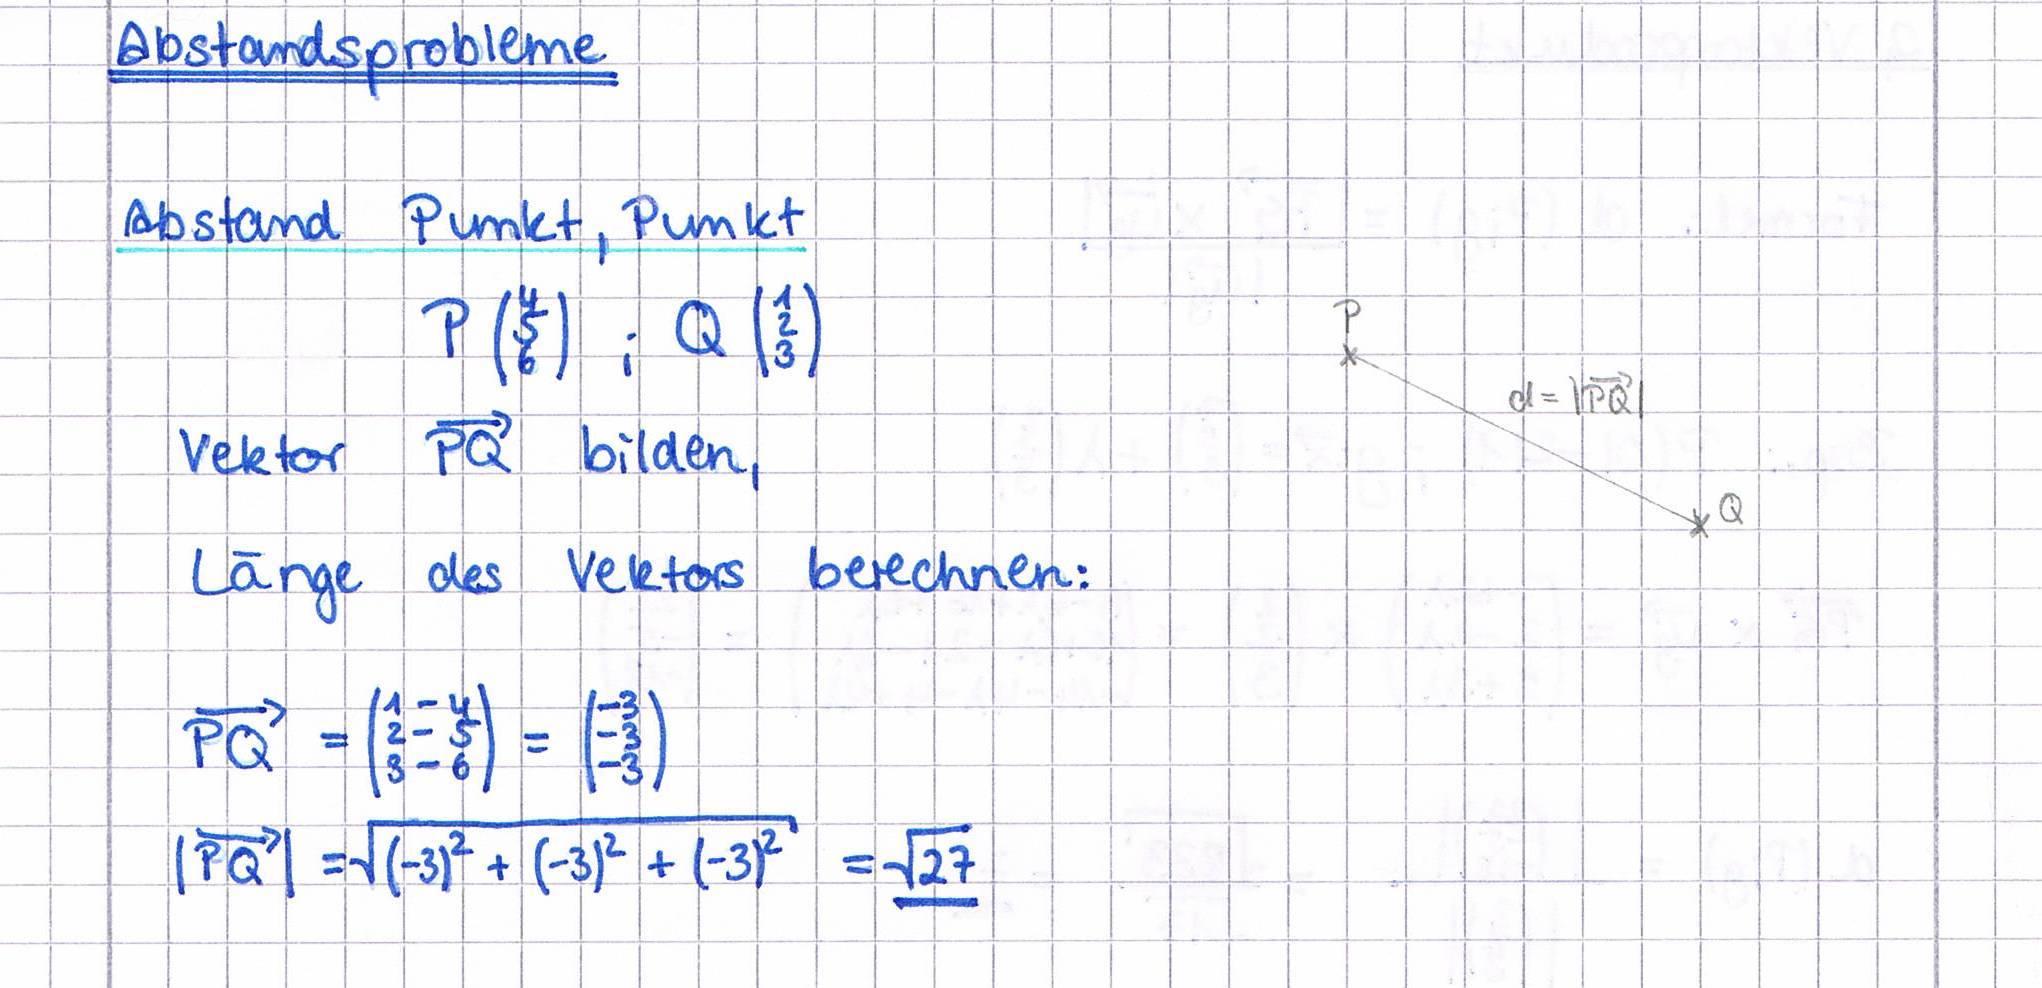 Abstandsprobleme
Abstand Punkt, Punkt
P (4 5 6) ; Q (1 2 3)
P
d = |PQ|
Q
Vektor PQ bilden,
Länge des Vektors berechnen:
PQ = (1 - 4 2 - 5 3 - 6) = (-3 -3 -3)
|PQ| = √(-3)² + (-3)² + (-3)² = √27